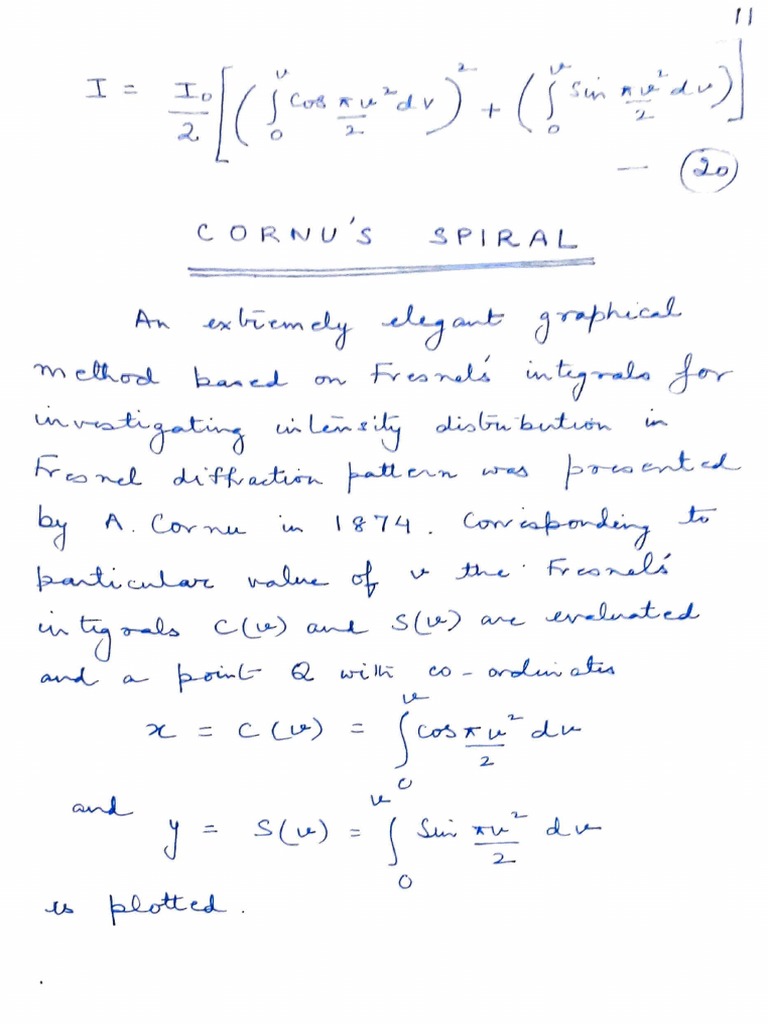 11
I = I₀/2 [ ( ∫₀ᵛ cos πv²/2 dv )² + ( ∫₀ᵛ sin πv²/2 dv ) ]
— (20)
CORNU'S SPIRAL
An extremely elegant graphical
method based on Fresnel's integrals for
investigating intensity distribution in
Fresnel diffraction pattern was presented
by A. Cornu in 1874. Corresponding to
particular value of v the Fresnel's
integrals C(v) and S(v) are evaluated
and a point Q with co-ordinates
x = C(v) = ∫₀ᵛ cos πv²/2 dv
and
y = S(v) = ∫₀ᵛ sin πv²/2 dv
is plotted.